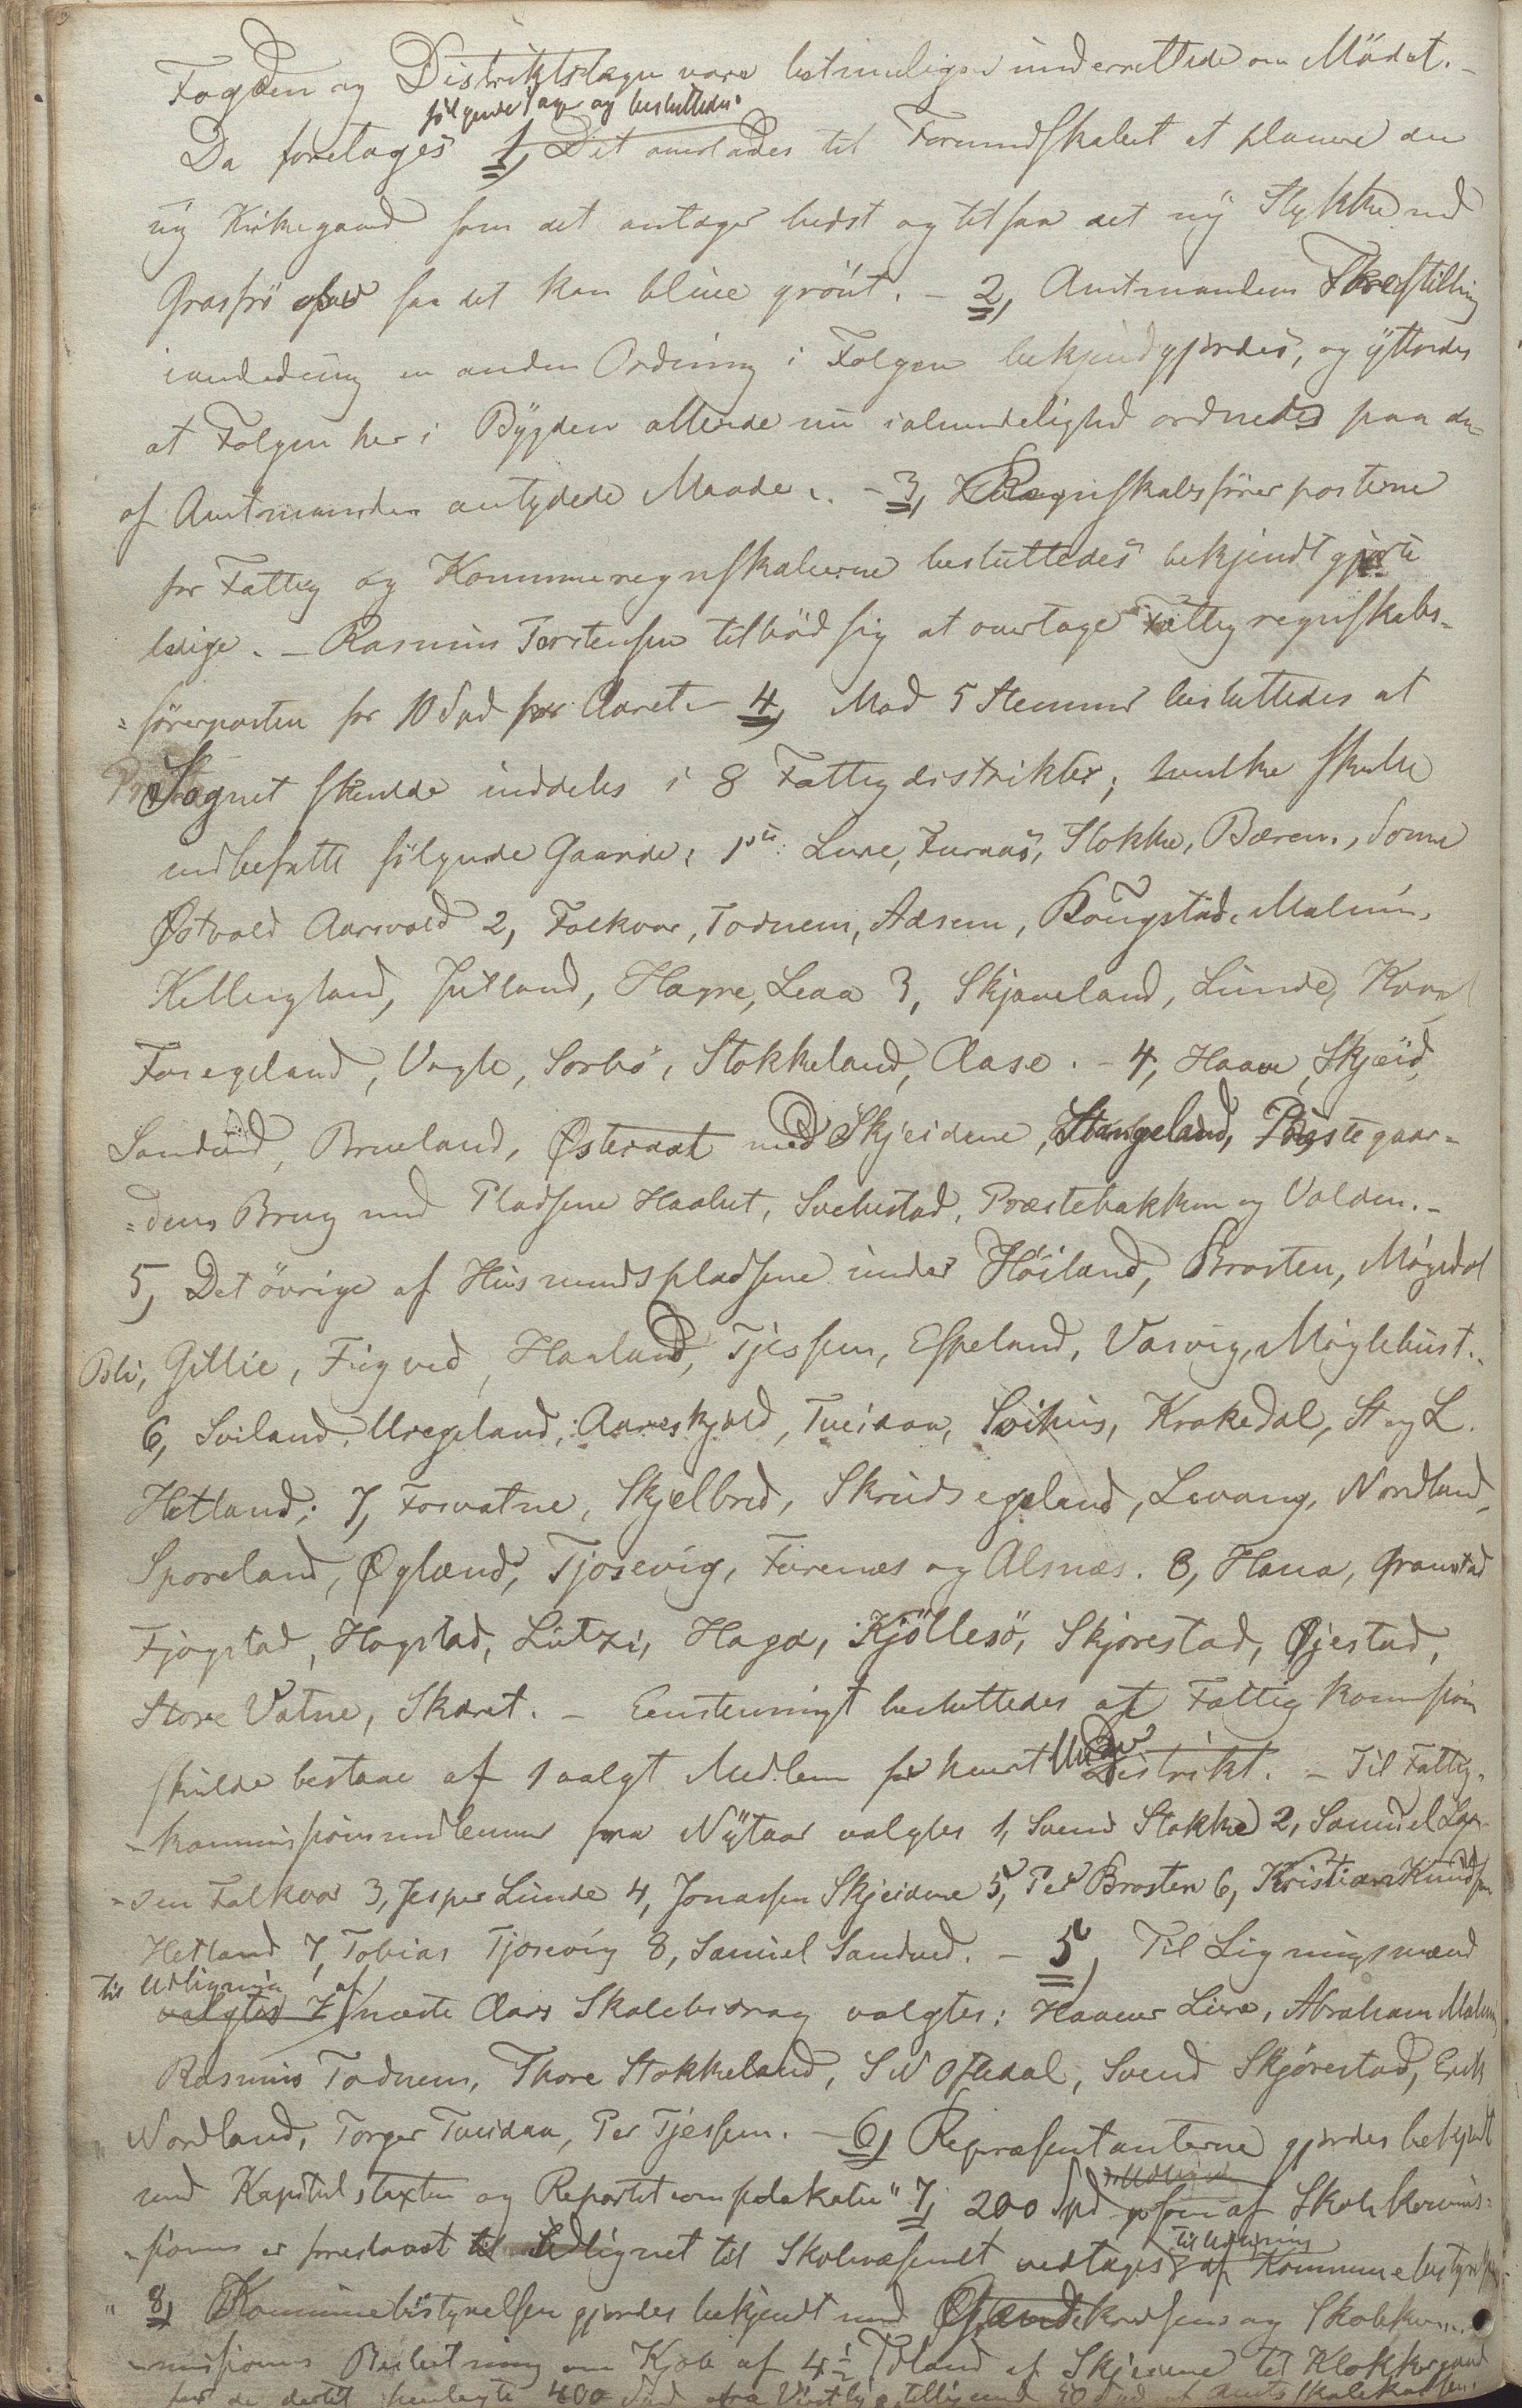 Fogden og Distriktslægen vare betimeligen underrettede om Mödet. -
følgende Sager og besluttedes
Da foretoges 1, Det overlades til Formandskabet at planere den
ny Kirkegaard som det antager bedst og tilsaa det ny Stykke med
Grasfrö saa det kan blive grönt. - 2, Amtmandens Forestilling
i anledning en anden Ordning i Folgen bekjendtgjordes, og ÿttredes
at Folgen her i Bÿgden allerede nu i almindelighed ordnedes paa den
af Amtmanden antydede Maade. - 3, Regnskabsförer posterne
for Fattig og Kommuneregnskaberne besluttedes bekjendtgjorte
ledige. - Rasmus Torstensen tilböd sig at overtage Fattigregnskabs-
=förerposten for 10 Spd for Aaret - 4, Mod 5 Stemmer besluttedes at
Sognet skulde inddeles i 8 Fattigdistrikter; hvilke skulde
indbefatte fölgende Gaarde: 1ste: Lure, Furnæs, Stokke, Bærem, Somme
Østvold Aarsvold 2, Folkvor, Todnem, Adsem, Bougstad, Malmin,
Kellingland, Jutland, Hogne, Leaa 3, Skjæveland, Lunde, Kval
Foregeland, Vagle, Sorbö, Stokkeland, Aase. - 4, Haave, Skjæid,
Sandved, Brueland, Østeraat med Skjeidene, Stangeland, Præstegaar=
=dens Brug med Pladsene Haabet, Svebestad, Præstebakken og Valden. -
5, Det övrige af Husmandspladsene under Höiland, Brosten, Mögedal
Osli, Gillie, Figved, Hanland, Tjessem, Espeland, Vasvig, Möglebust.
6, Sviland, Uregeland, Aareskjold, Tveidaa, Svihus, Krakedal, St og L.
Hetland; 7, Fosvatne, Skjelbred, Skrudsegeland, Levang, Nordland,
Sporeland, Øglænd, Tjosevig, Furenes og Alsnæs. 8, Hana, Gramstad
Fjogstad, Hogstad, Lutzi, Haga, Kjöllesö, Skjörestad, Øjestad,
Store Vatne, Skaret. - Eenstemmigt besluttedes at Fattigkommission
skulde bestaae af 1 valgt Medlem for hvert Distrikt. - Til Fattig-
-kommissionsmedlemmer fra Nÿtaar valgtes 1, Svend Stokke 2, Samuel Lar-
-sen Falkvor 3, Jesper Lunde 4, Jonassen Skjeidene 5, Per Brosten 6, Kristian Knudsen
Hetland 7, Tobias Tjosevig 8, Samuel Sandved. - 5, Til Ligningsmænd
til Udligning af
valgtes 7 næste Aars Skolebidrag valgtes: Haaver Lure, Abraham Malmin
Rasmus Todnem, Thore Stokkeland, S N Oftedal, Svend Skjörestad, Erik
Nordland, Torger Tveidaa, Per Tjessem. - 6, Repræsentanterne gjordes bekjendt
med Kapitelstaxten og Repartitionsplakaten" 7, 200 Spd som af Skolekommis-
-sionen er foreslaaet udlignet til Skolevæsenet vedtages af Kommunebestyrelsen
til Udligning
" 8, Kommunebestyrelsen gjordes bekjendt med Øglændskredsens og Skolekom
-missionens Beslutning om Kjöb af 4½ Tdland af Skjeidene til Klokkergaard
for de dertil henlagte 400 Spd